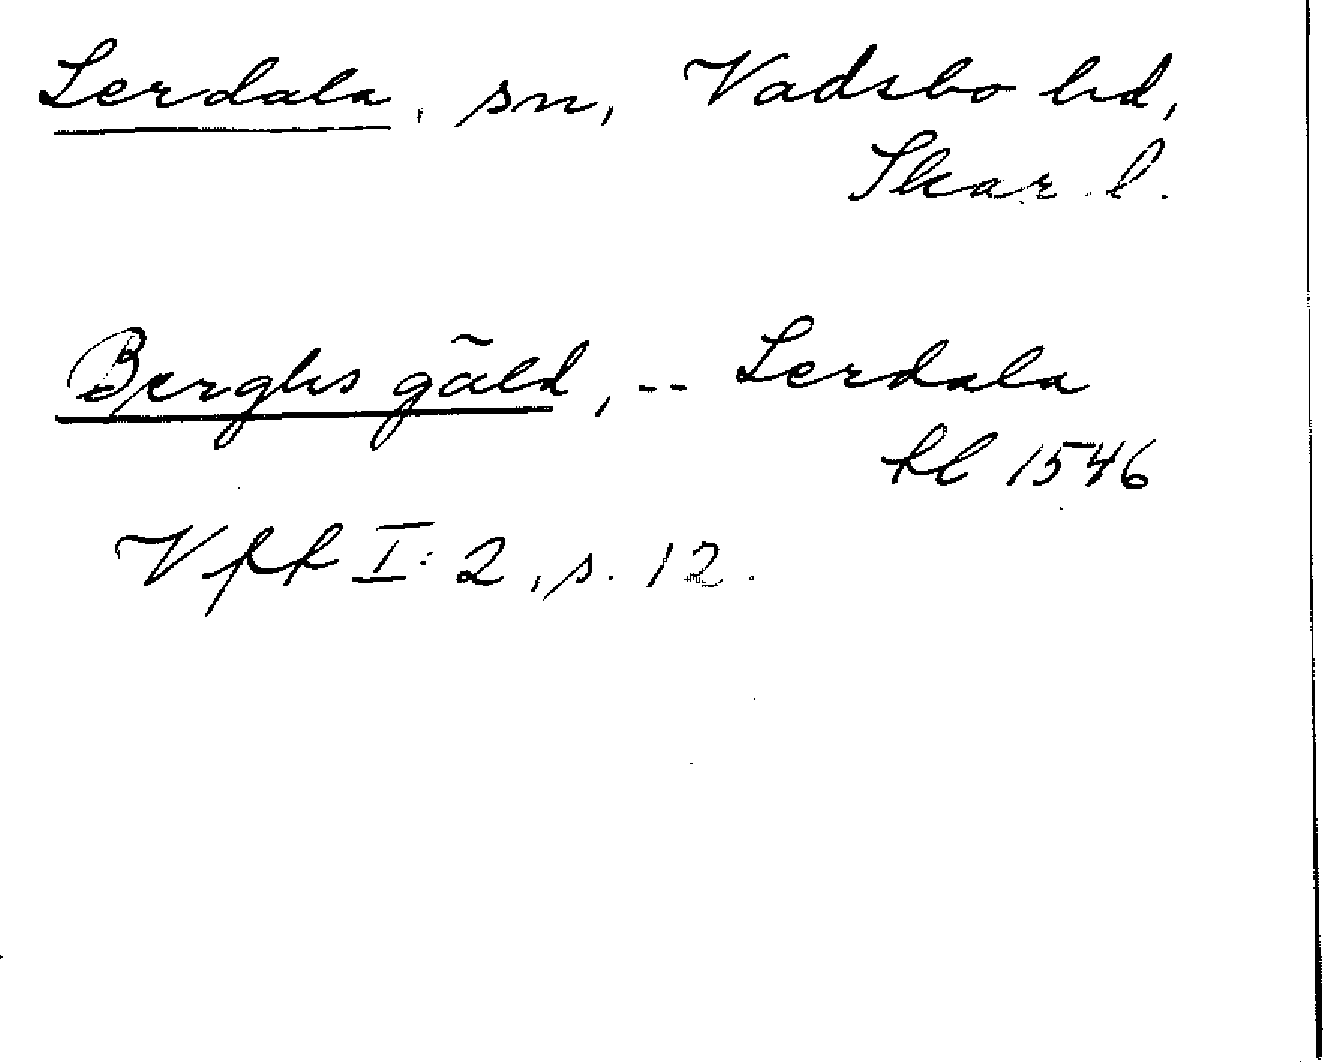 Lerdala, sn, Vadsbo hd,
Skar. l.
Berghs gäld, -- Lerdala
kl 1546
Vff I: 2, s. 12.